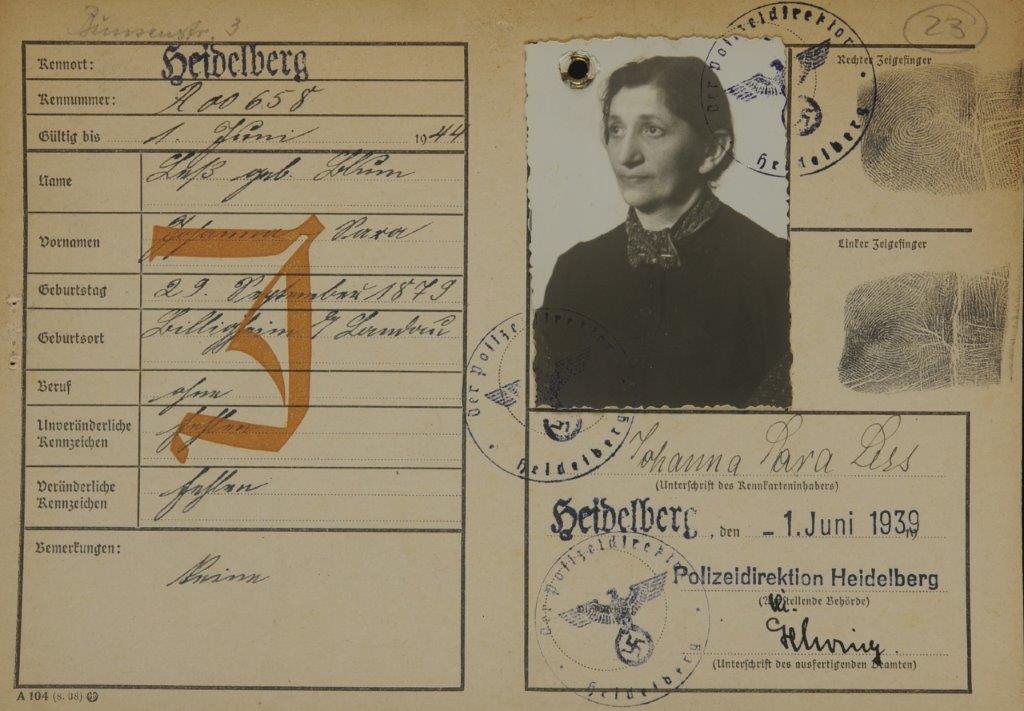 Bunsenstr. 3
23
Kennort: Heidelberg
Kennummer: A 00658
Gültig bis 1. Juni 1944
Name Leß geb. Blum
Vornamen Johanna Sara
Geburtstag 29. September 1879
Geburtsort Billigheim b/ Landau
Beruf ohne
Unveränderliche Kennzeichen fehlen
Veränderliche Kennzeichen fehlen
Bemerkungen:
Keine
J
A 104 (8. 38)
Der Polizeidirektor
Heidelberg
Rechter Zeigefinger
Linker Zeigefinger
Der Polizeidirektor
Heidelberg
Johanna Sara Less
(Unterschrift des Kennkarteninhabers)
Heidelberg, den - 1. Juni 1939
19
Polizeidirektion Heidelberg
(Ausstellende Behörde)
(Unterschrift des ausfertigenden Beamten)
Der Polizeidirektor
Heidelberg